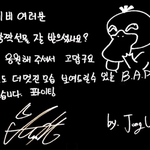 비 여러분
선물 잘 받으셨나요?
응원해 주셔서 고맙구요
도 더 멋진 모습 보여드릴 수 있는 B.A.P
습니다. 파이팅
by. Jong U